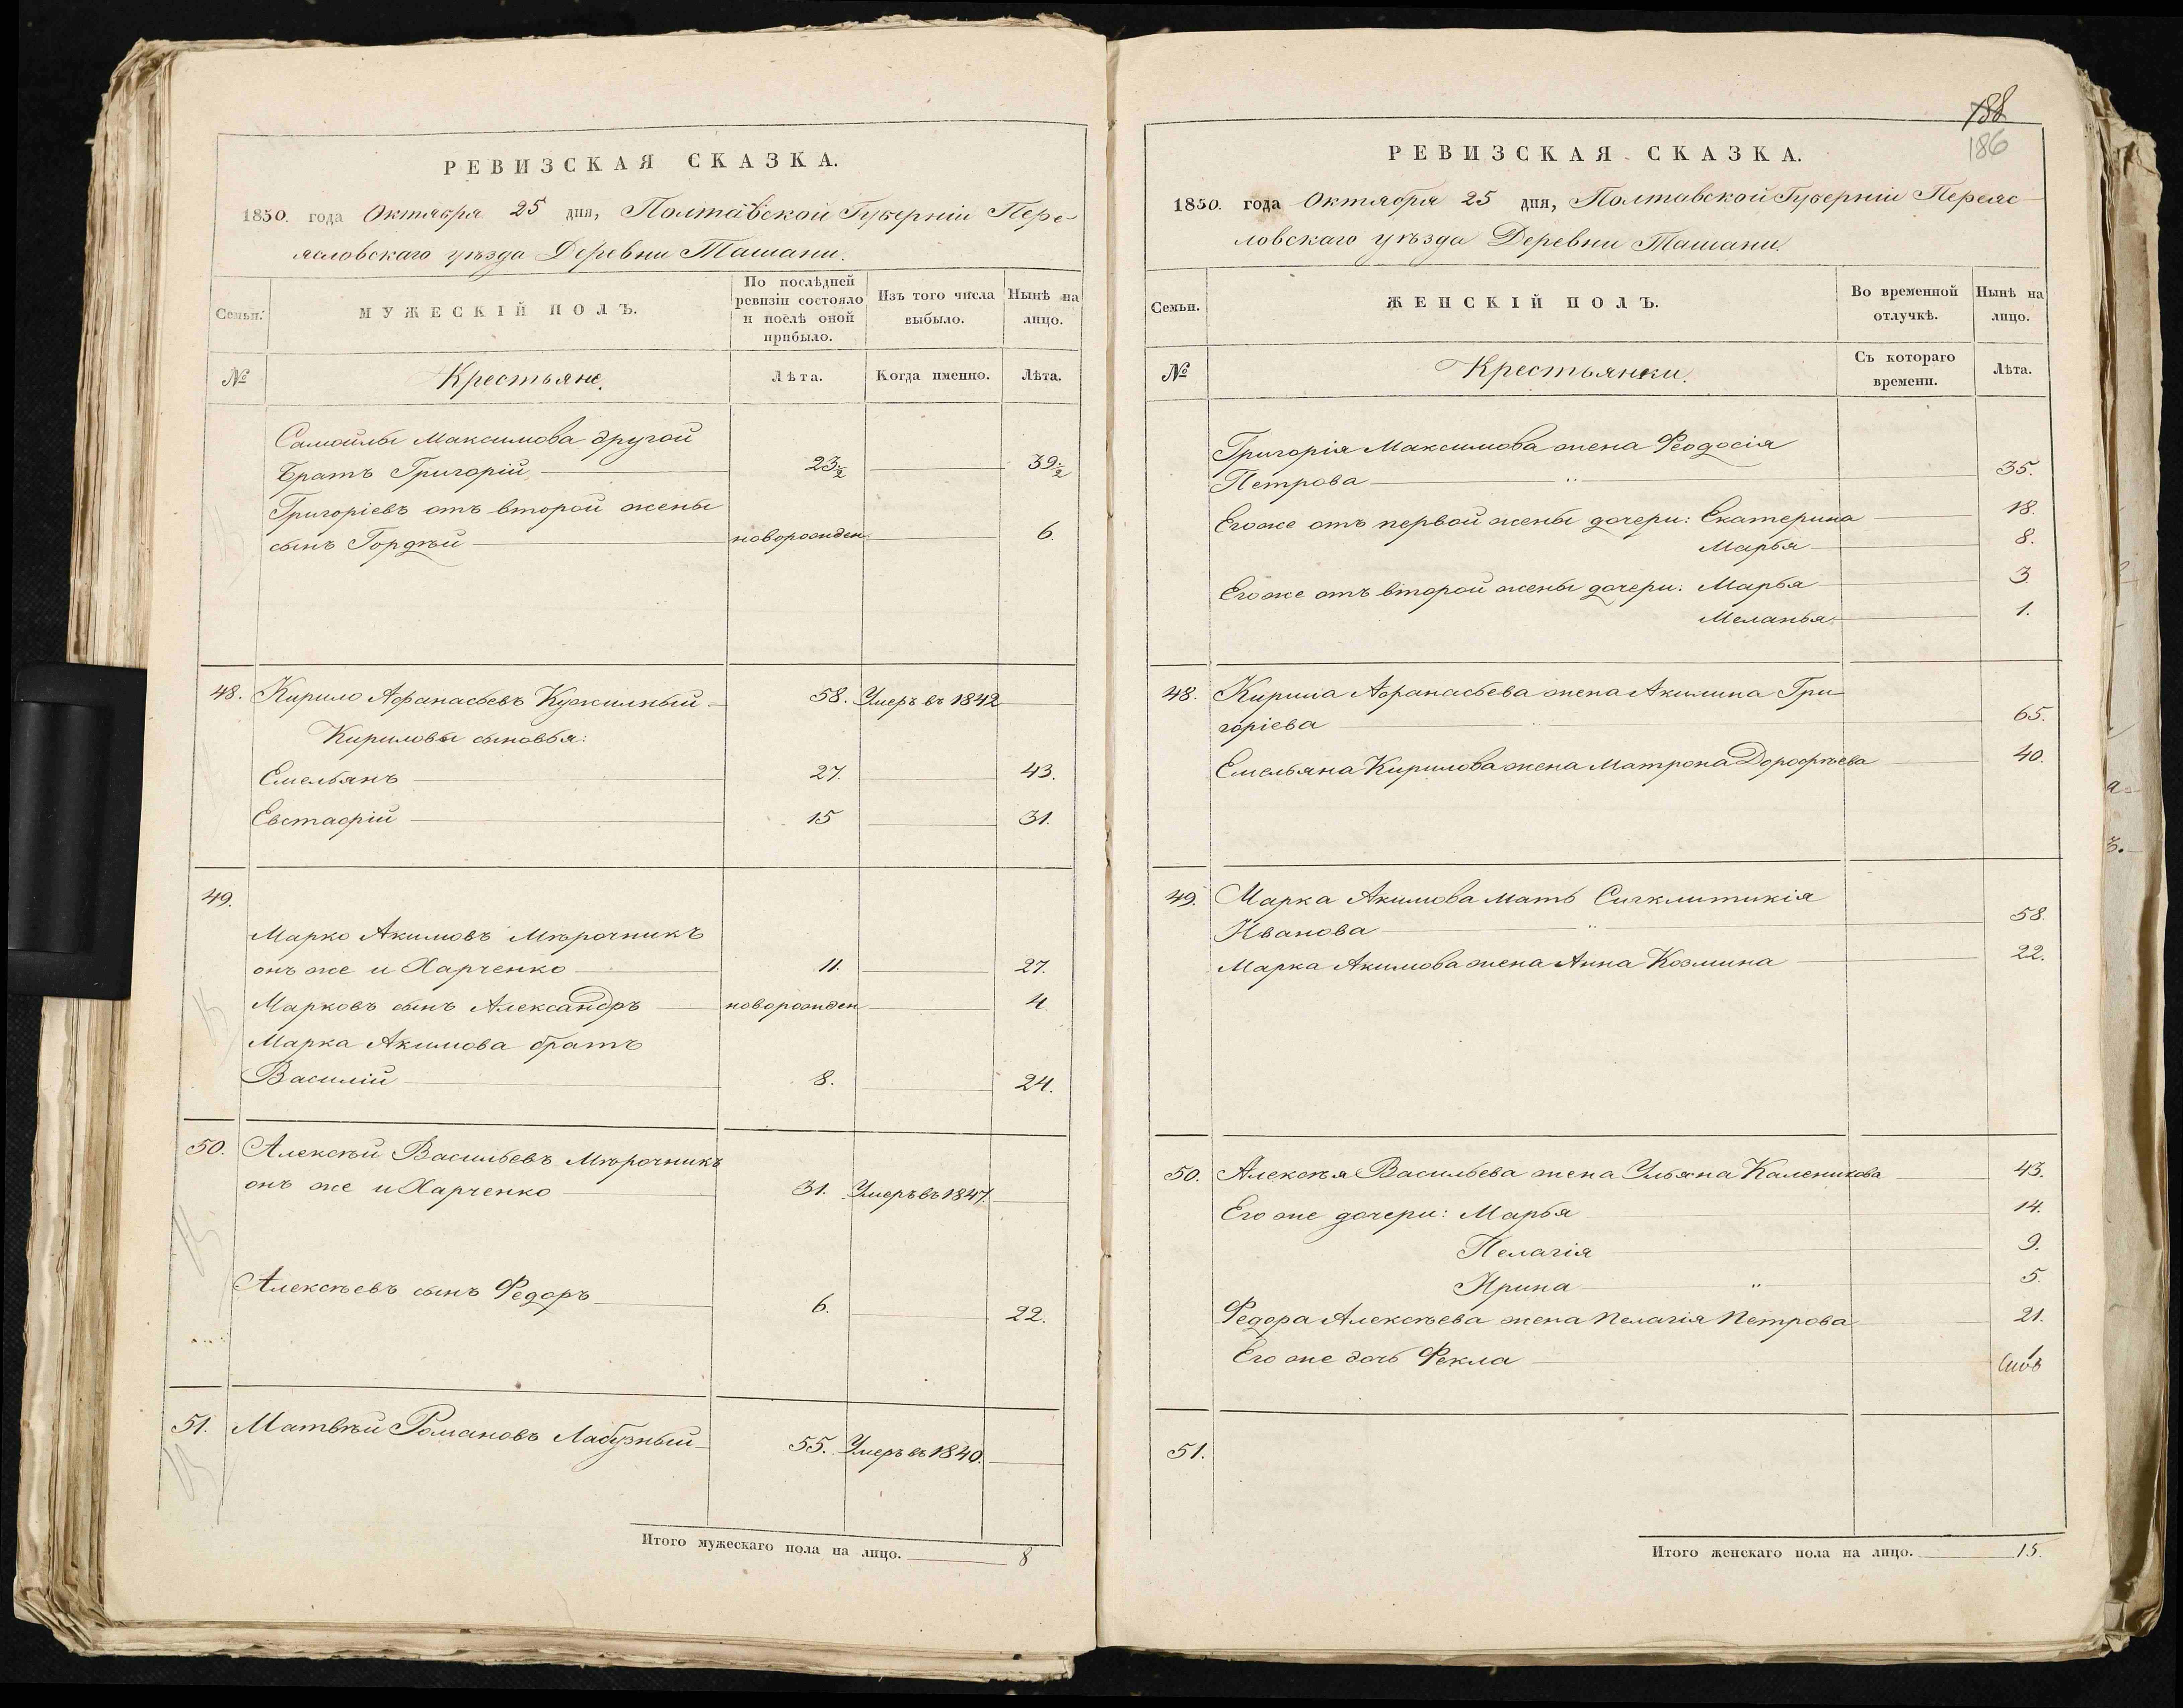 РЕВИЗСКАЯ СКАЗКА.
1850. года Октября 25 дня, Полтавской Губерніи Пере-
ясловскаго уѣзда Деревни Ташани.
Семьи.
МУЖЕСКІЙ ПОЛЪ.
По послѣдней
ревизіи состояло
и послѣ оной
прибыло.
Изъ того числа
выбыло.
Нынѣ на
лицо.
№
Крестьяне.
Лѣта.
Когда именно.
Лѣта.
Самойлы Максимова другой
братъ Григорій 23½ 39½
Григоріевъ отъ второй жены
сынъ Гордѣй новорожден. 6.
48. Кирило Афанасьевъ Кужильный 58. Умеръ въ 1842
Кириловы сыновья:
Емельянъ 27. 43.
Евстафій 15 31.
49.
Марко Акимовъ Мѣрочникъ
онъ же и Харченко 11. 27.
Марковъ сынъ Александръ новорожден 4.
Марка Акимова братъ
Василій 8. 24.
50. Алексѣй Васильевъ Мѣрочникъ
онъ же и Харченко 31. Умеръ въ 1847.
Алексѣевъ сынъ Федоръ 6. 22.
51. Матвѣй Романовъ Лабузный 55. Умеръ въ 1840.
Итого мужескаго пола на лицо. 8
188
186
РЕВИЗСКАЯ СКАЗКА.
1850. года Октября 25 дня, Полтавской Губерніи Переяс
ловскаго уѣзда Деревни Ташани.
Семьи.
ЖЕНСКІЙ ПОЛЪ.
Во временной
отлучкѣ.
Нынѣ на
лицо.
№
Крестьянки.
Съ котораго
времени.
Лѣта.
Григорія Максимова жена Феодосія
Петрова 35.
Его же отъ первой жены дочери: Екатерина 18.
Марья 8.
Его же отъ второй жены дочери: Марья 3
Меланья. 1.
48. Кирила Афанасьева жена Акилина Гри
горіева 65.
Емельяна Кирилова жена Матрона Дорофѣева 40.
49. Марка Акимова мать Сигклитикія
Иванова 58.
Марка Акимова жена Анна Козмина 22.
50. Алексѣя Васильева жена Ульяна Каленикова 43.
Его же дочери: Марья 14.
Пелагія 9.
Ирина 5.
Федора Алексѣева жена Пелагія Петрова 21.
Его же дочь Фекла 1
51.
Итого женскаго пола на лицо. 15.